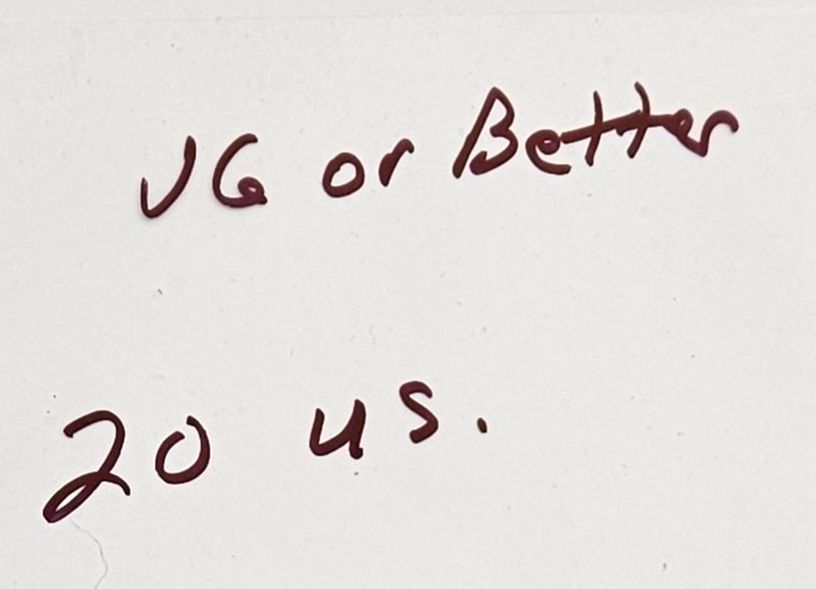 VG or Better
20 us.